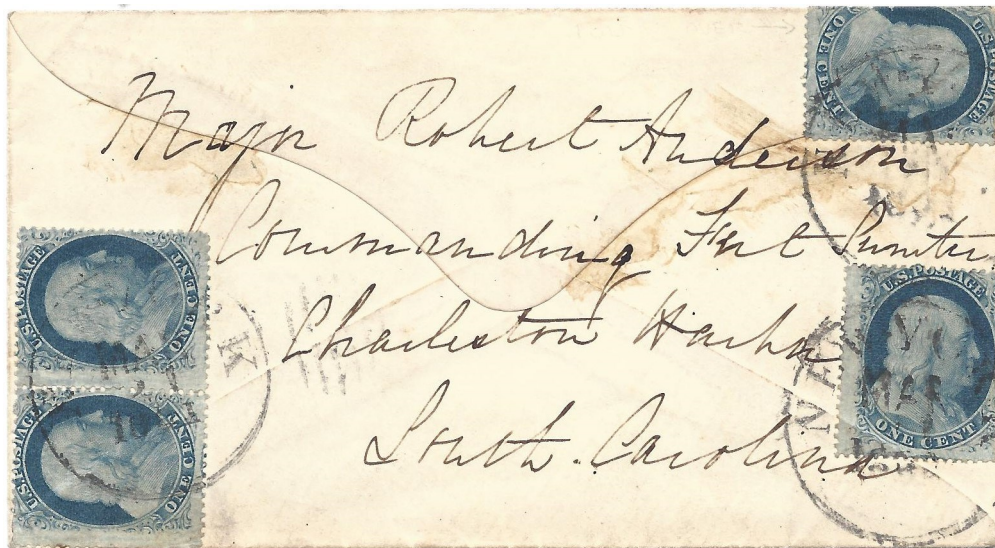 Major Robert Anderson
Commanding Fort Sumter
Charleston Harbor
South Carolina
U.S. POSTAGE
ONE CENT
U.S. POSTAGE
ONE CENT
U.S. POSTAGE
ONE CENT
U.S. POSTAGE
ONE CENT
NEW YO
MAR
K